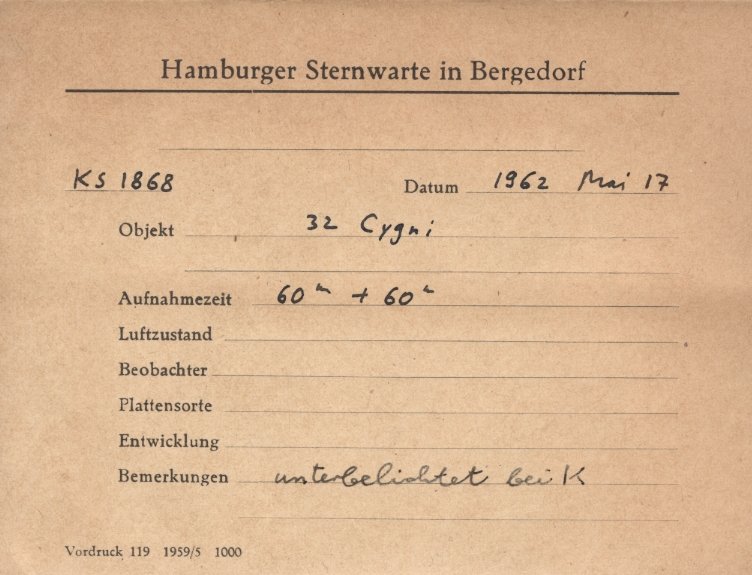 Hamburger Sternwarte in Bergedorf
KS 1868 Datum 1962 Mai 17
Objekt 32 Cygni
Aufnahmezeit 60ᵐ + 60ᵐ
Luftzustand
Beobachter
Plattensorte
Entwicklung
Bemerkungen unterbelichtet bei K
Vordruck 119 1959/5 1000